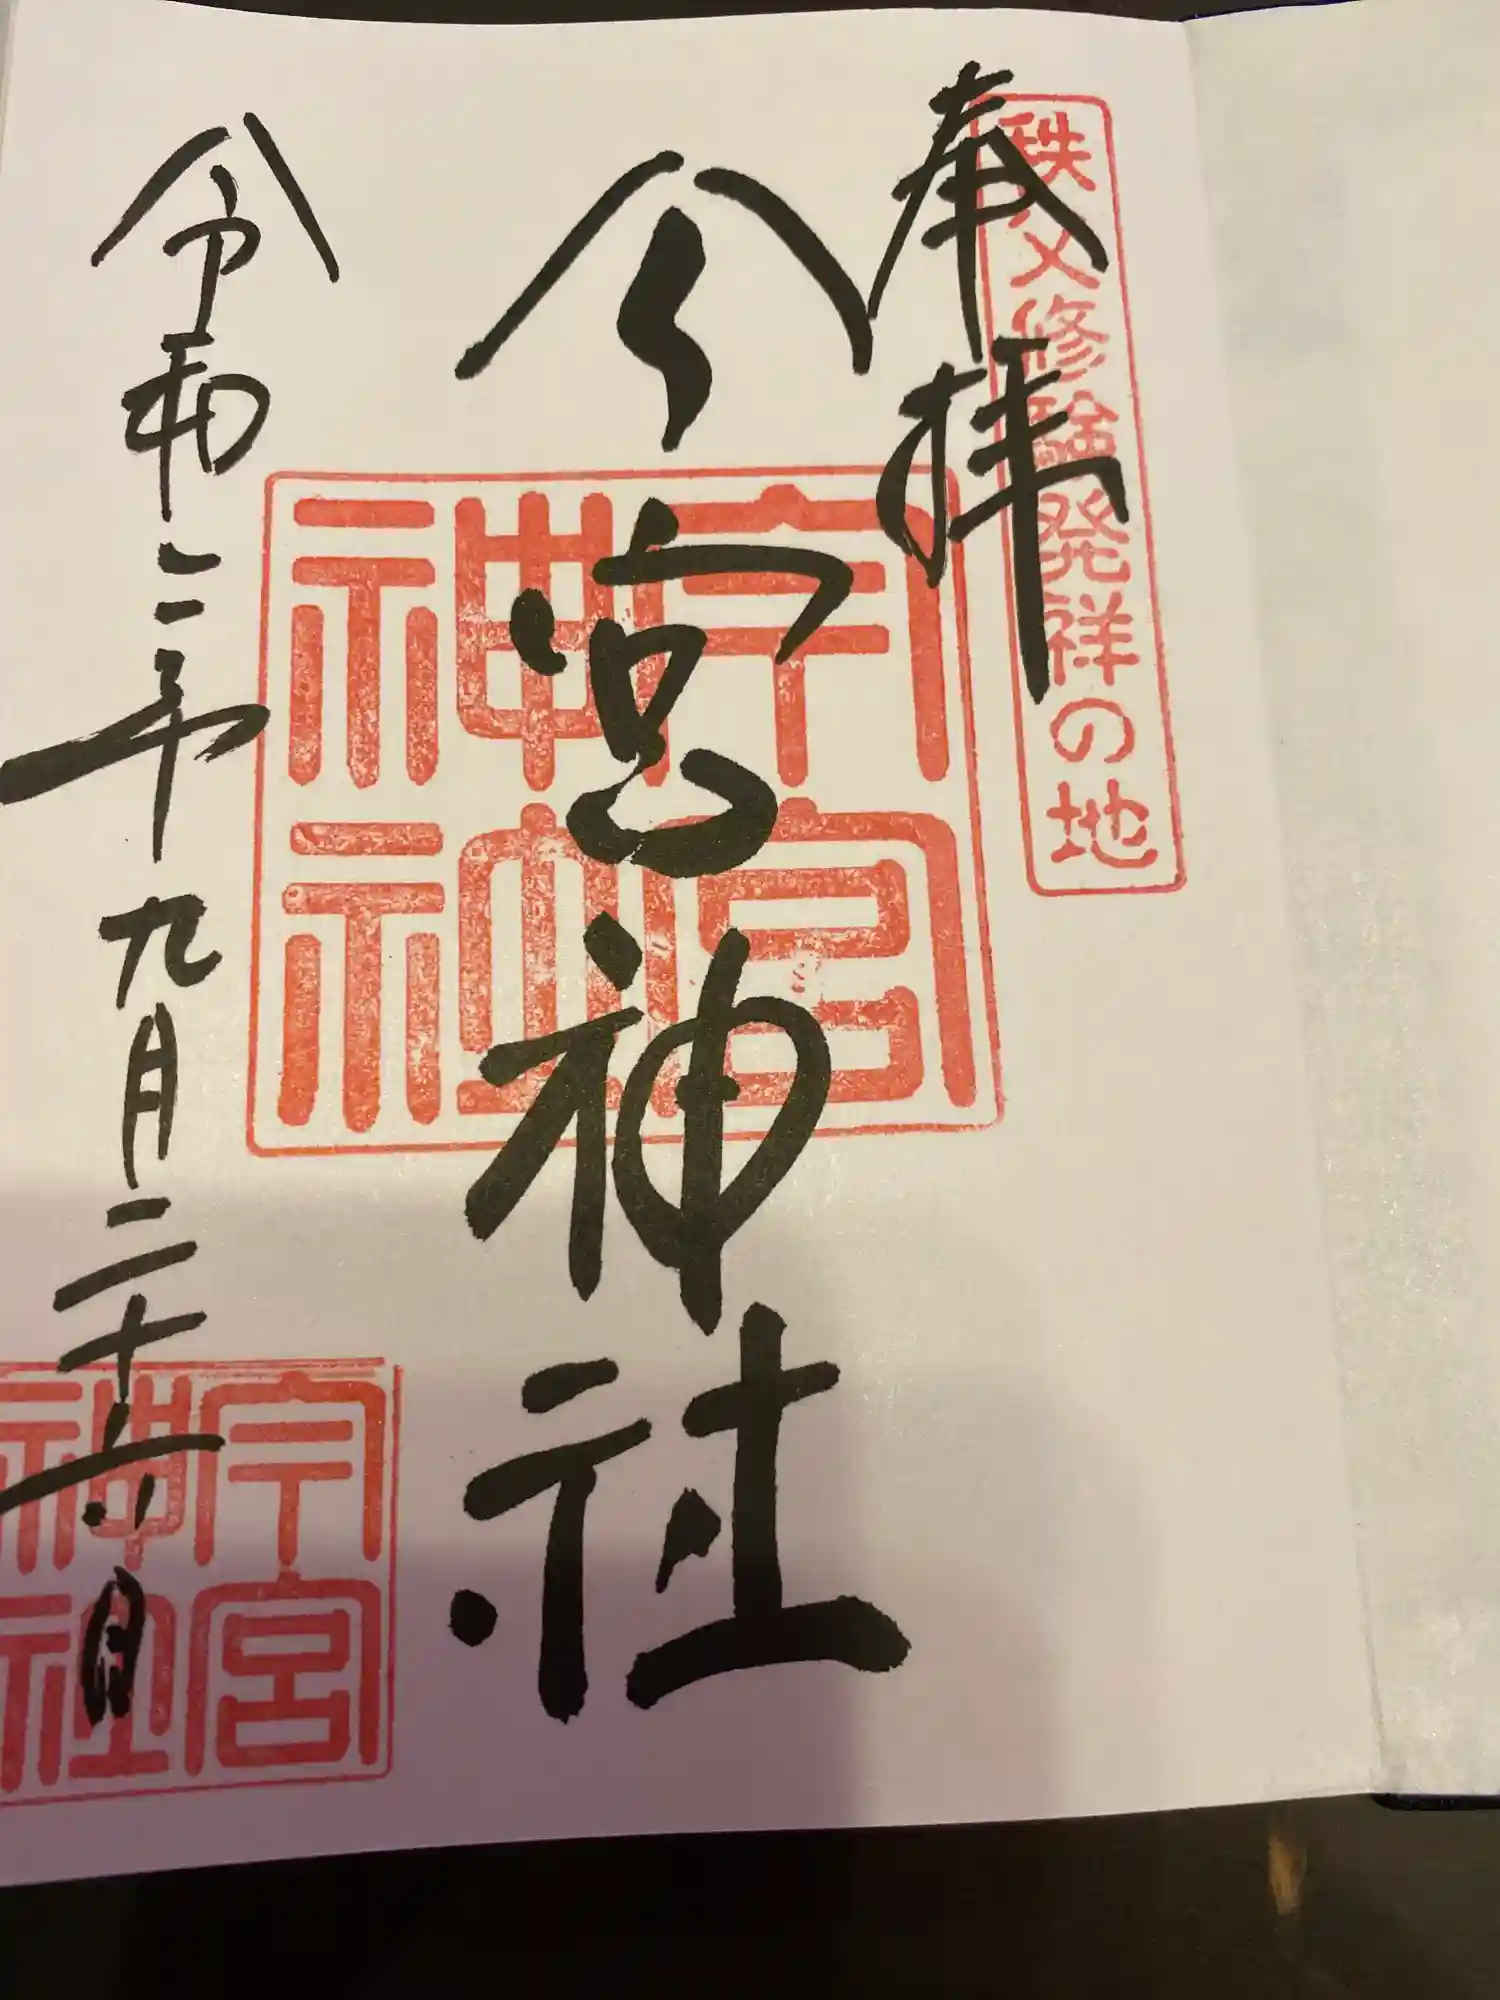 奉拝
秩父修験発祥の地
今宮神社
今宮神社
令和二年九月二十六日
今宮神社